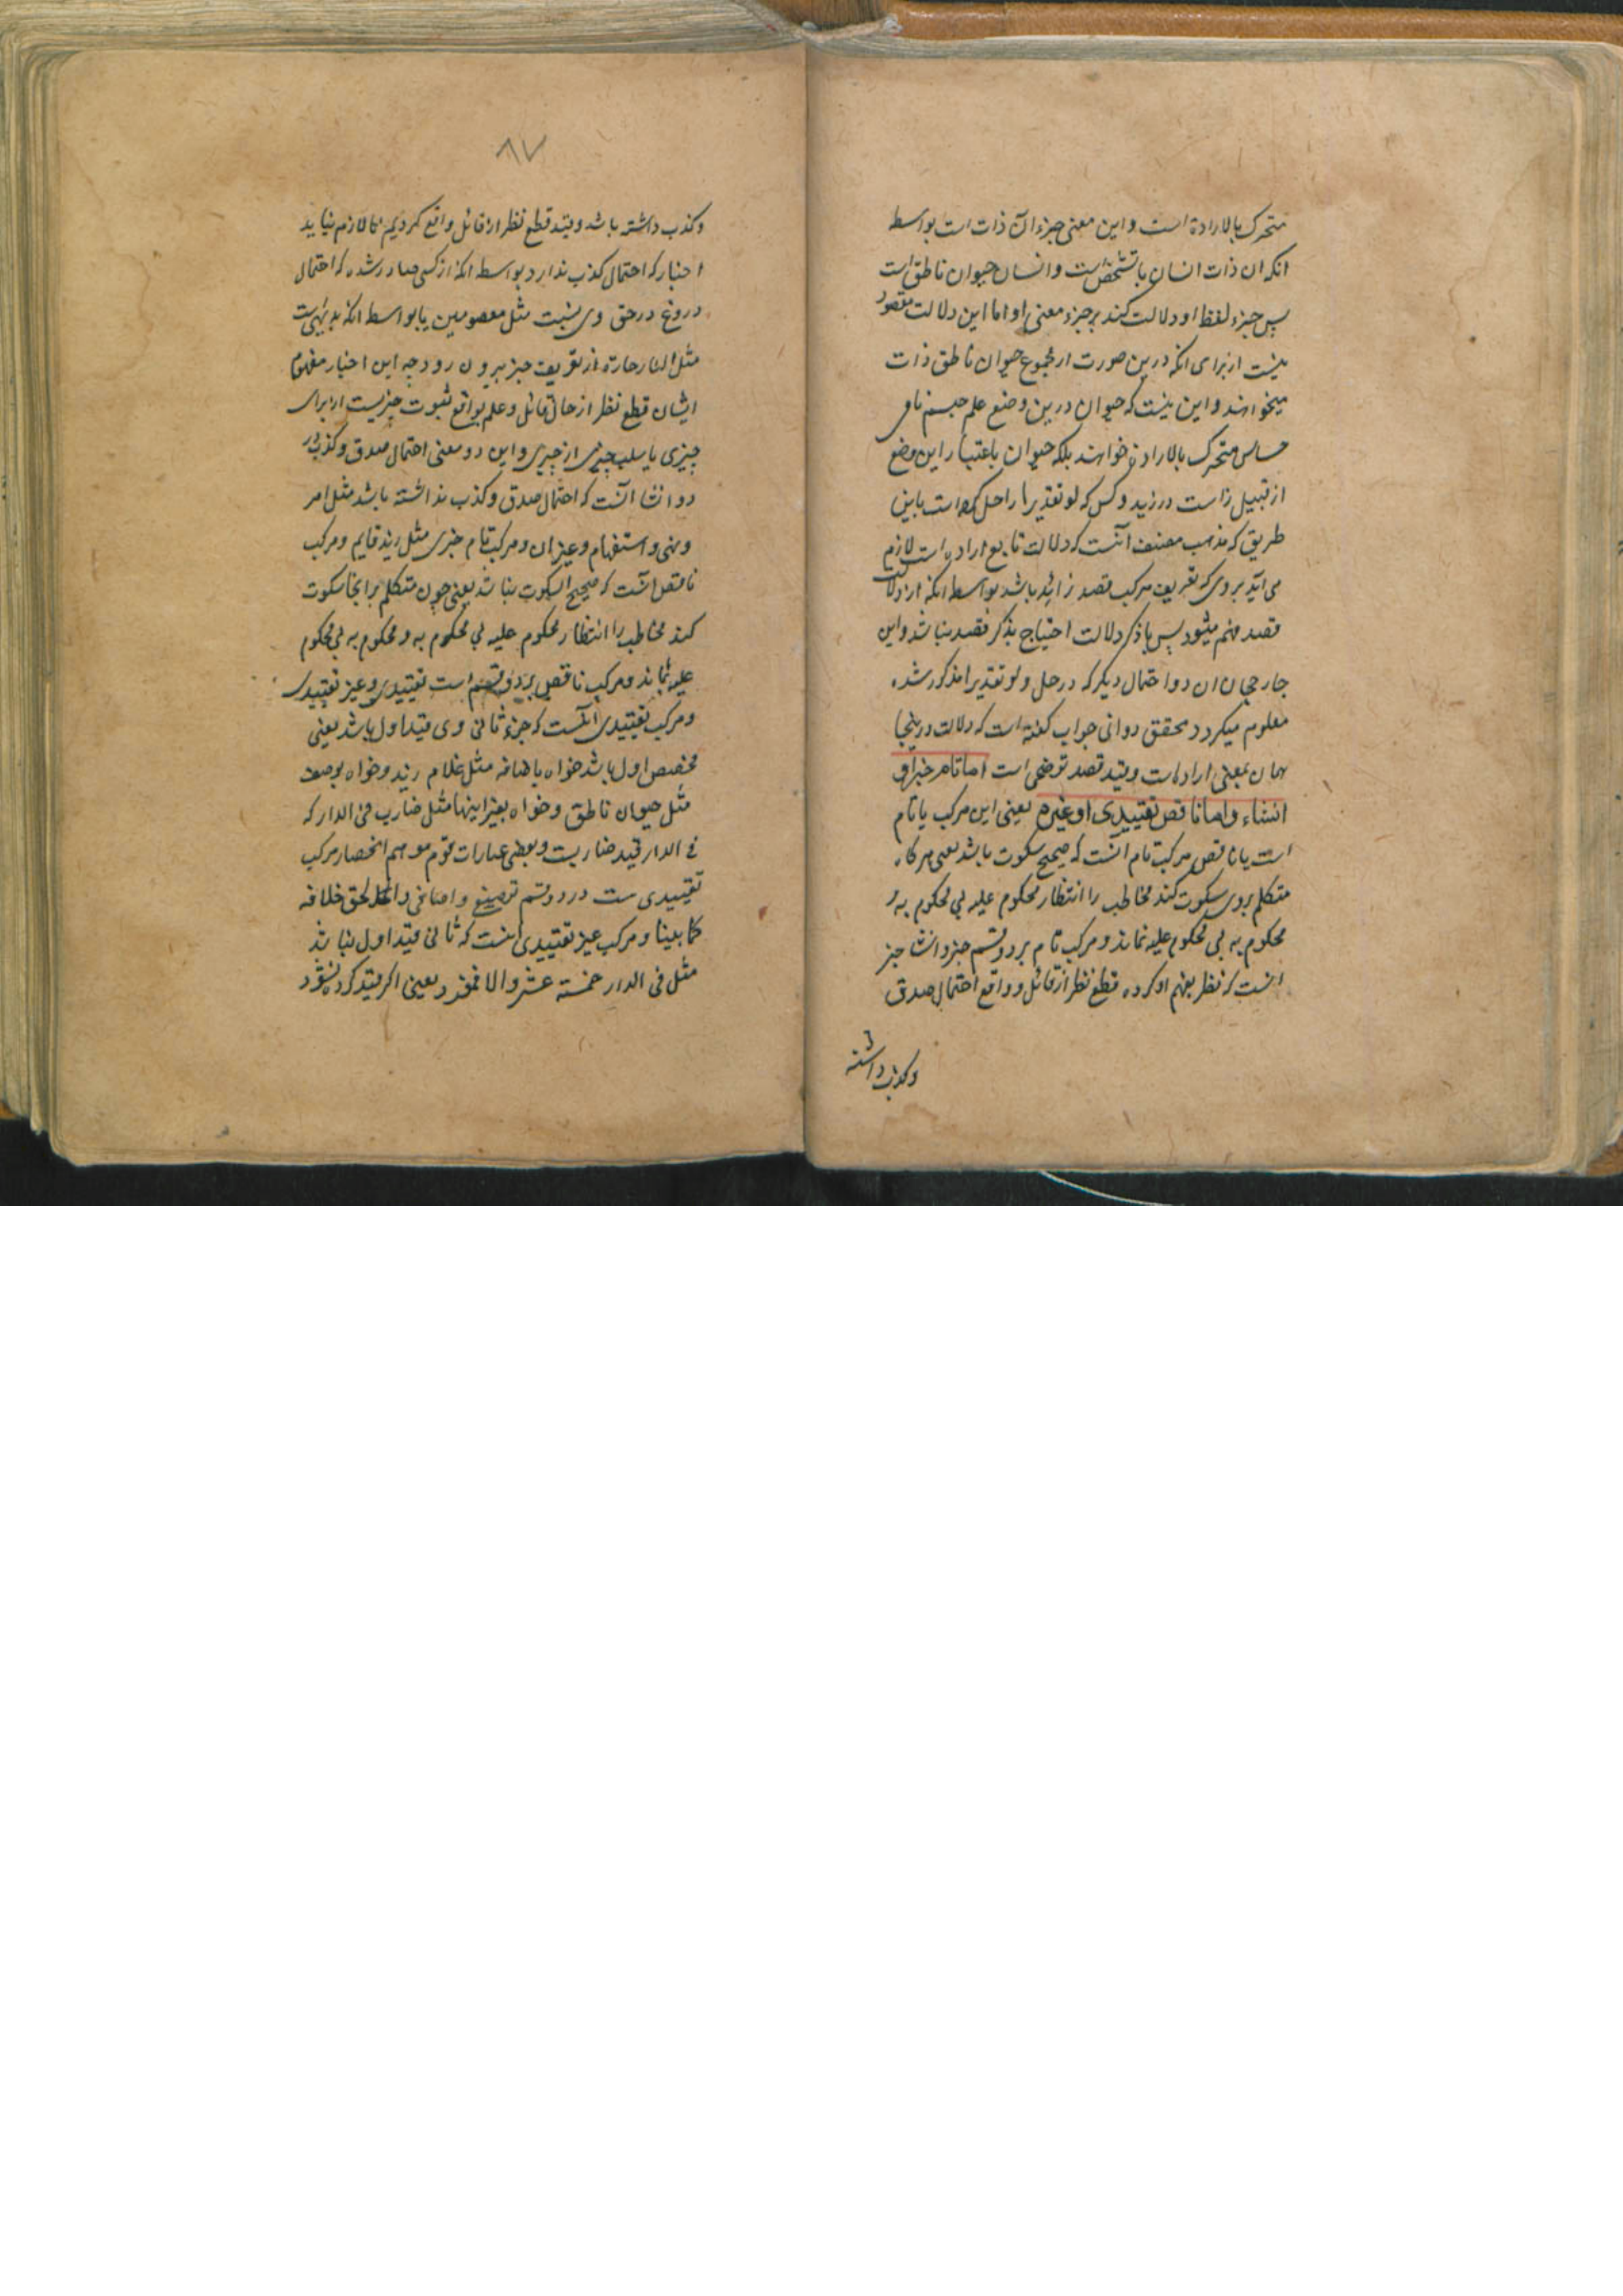 متحرک بالاراده است و این معنی جزء ان ذات است بواسطه
انکه ان ذات انسان با تشخص است و انسان حیوان ناطق است
پس جزء لفظ او دلالت کند بر جزء معنی او اما این دلالت مقصود
نیست از برای انکه درین صورت از مجموع حیوان ناطق ذات
میخواهند و این نیست که حیوان درین وضع علم جسم نامی
حساس متحرک بالاراده خواهند بلکه حیوان باعتبار این وضع
از قبیل زاست در زید و کس که لو تقدیرا را حل کرده است باین
طریق که مذهب مصنف آنست که دلالت تابع اراده است لازم
می آید بروی که تعریف مرکب قصد زاید باشد بواسطه انکه از دلالت
قصد فهم میشود پس با ذکر دلالت احتیاج بذکر قصد نباشد و این
جا رجحان ان دو احتمال دیکر که در حل و لو تقدیرا مذکور شده
معلوم میکردد محقق دوانی جواب کفته است که دلالت درینجا
همان بمعنی اراده است و قید قصد توضیحی است اما تام خبر او
انشاء و اما ناقص تقییدی او غیره یعنی این مرکب یا تام
است یا ناقص مرکب تام انست که صحیح سکوت باشد یعنی هر کاه
متکلم بروی سکوت کند مخاطب را انتظار محکوم علیه بی محکوم به و
محکوم به بی محکوم علیه نماند و مرکب تام بر دو قسم خبر و انشا خبر
انست که نظر بفهم او کرده قطع نظر از قائل و واقع احتمال صدق
و کذب داشته
۸۷
و کذب داشته باشد و قید قطع نظر از قائل و واقع کردیم تا لازم نیاید
اخبار که احتمال کذب ندارد بواسطه انکه از کسی صادر شده که احتمال
دروغ در حق وی نیست مثل معصومین یا بواسطه انکه بدیهی است
مثل النار حارة از تعریف خبر بیرون رود چه این اخبار مفهوم
ایشان قطع نظر از حال قائل و علم بواقع ثبوت چیزیست از برای
چیزی یا سلب چیزی از چیزی و این دو معنی احتمال صدق و کذب دارد
و انشا آنست که احتمال صدق و کذب نداشته باشد مثل امر
و نهی و استفهام و غیر ان و مرکب تام خبری مثل زید قایم و مرکب
ناقص آنست که صحیح السکوت نباشد یعنی چون متکلم بر انجا سکوت
کند مخاطب را انتظار محکوم علیه بی محکوم به و محکوم به بی محکوم
علیه بماند و مرکب ناقص بر دو قسم است تقییدی و غیر تقییدی
و مرکب تقییدی آنست که جزء ثانی وی قید اول باشد یعنی
مخصص اول باشد خواه باضافه مثل غلام زید و خواه بوصف
مثل حیوان ناطق و خواه بغیر اینها مثل ضارب فی الدار که
فی الدار قید ضاربست و بعضی عبارات قوم موهم انحصار مرکب
تقییدی ست در دو قسم توصیفی و اضافی و الحق خلافه
کما بینا و مرکب غیر تقییدی آنست که ثانی قید اول نباشد
مثل فی الدار خمسة عشر و الا فمفرد یعنی اکر قید کرده نشود